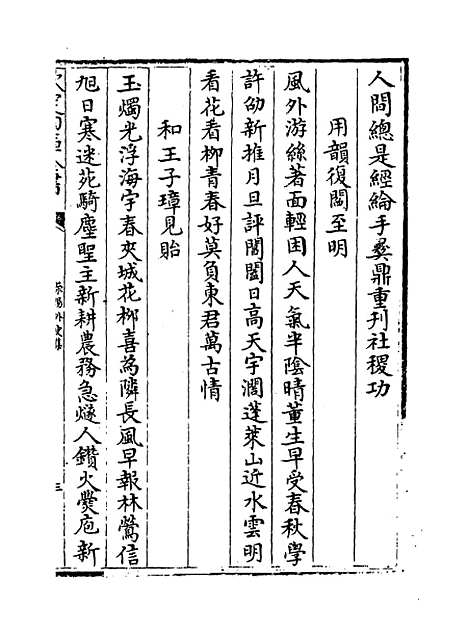 人間總是經綸手彛鼎重刋社稷功
用韻復闗至明
風外游絲著面輕困人天氣半陰晴董生早受春秋學
許劭新推月旦評閶闔日髙天宇濶蓬萊山近水雲明
看花看柳青春好莫負東君萬古情
和王子璋見貽
玉燭光浮海宇春夾城花柳喜為隣長風早報林鶯信
旭日寒迷苑騎塵聖主新耕農務急燧人鑽火爨庖新
三